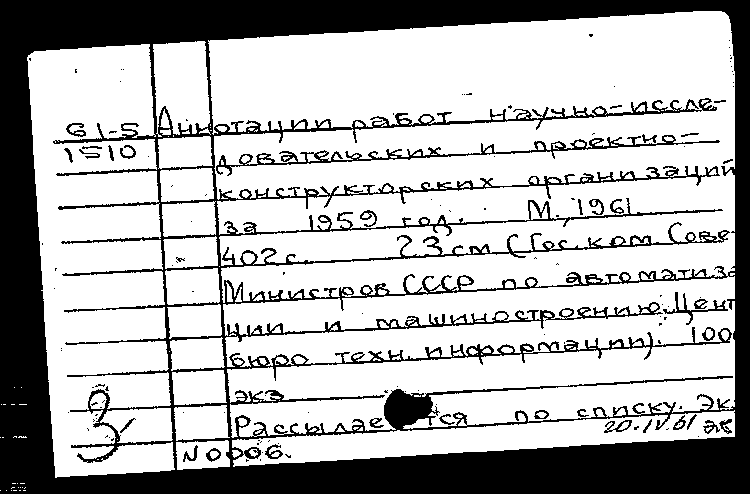 61-5 Аннотации работ научно-иссле-
1510 довательских и проектно-
конструкторских организаций
за 1959 год. М., 1961.
402 с. 23 см (Гос. ком. Сове
Министров СССР по автоматиза
ции и машиностроению. Цент
бюро техн. информации). 100
экз
Рассылается по списку. Экз
N0006. 20.IV.61
3